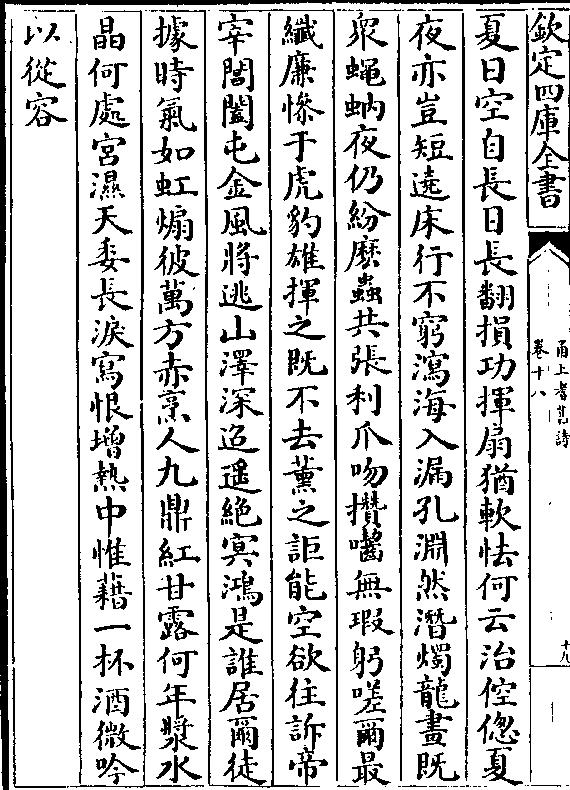 欽定四庫全書
甬上耆舊詩
卷十八
十九
夏日空自長日長翻損功揮扇猶軟怯何云治倥傯夏
夜亦豈短遶床行不窮瀉海入漏孔淵然潛燭龍晝既
衆蠅蚋夜仍紛麽蟲共張利爪吻攢囓無瑕躬嗟爾最
纖廉慘于虎豹雄揮之既不去薰之詎能空欲往訴帝
宰閶闔屯金風將逃山澤深迢遥絶冥鴻是誰居爾徒
據時氣如虹煽彼萬方赤烹人九鼎紅甘露何年漿水
晶何處宫濕天委長淚寫恨增熱中惟藉一杯酒微吟
以從容